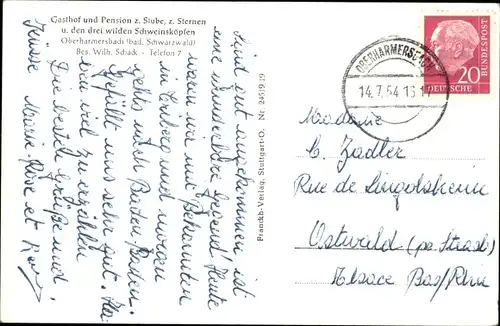 Gasthof und Pension z. Stube, z. Sternen
u. den drei wilden Schweinsköpfen
Oberharmersbach (bad. Schwarzwald)
Bes. Wilh. Schack - Telefon 7
Sind gut angekommen, ist
eine wunderbare Gegend. Heute
waren wir mit Bekannten
in Triberg und morgen
gehts nach Baden Baden.
Gefällt uns sehr gut.
viel zu erzählen
Die besten Grüße und
Küsse Marie Rose et
Franckh-Verlag, Stuttgart-O. Nr. 24519 19
OBERHARMERSBACH
14.7.54
20
DEUTSCHE
BUNDESPOST
Madame
Zadler
Rue de
Ostwald (pr. Strasb)
Alsace Bas/Rhin